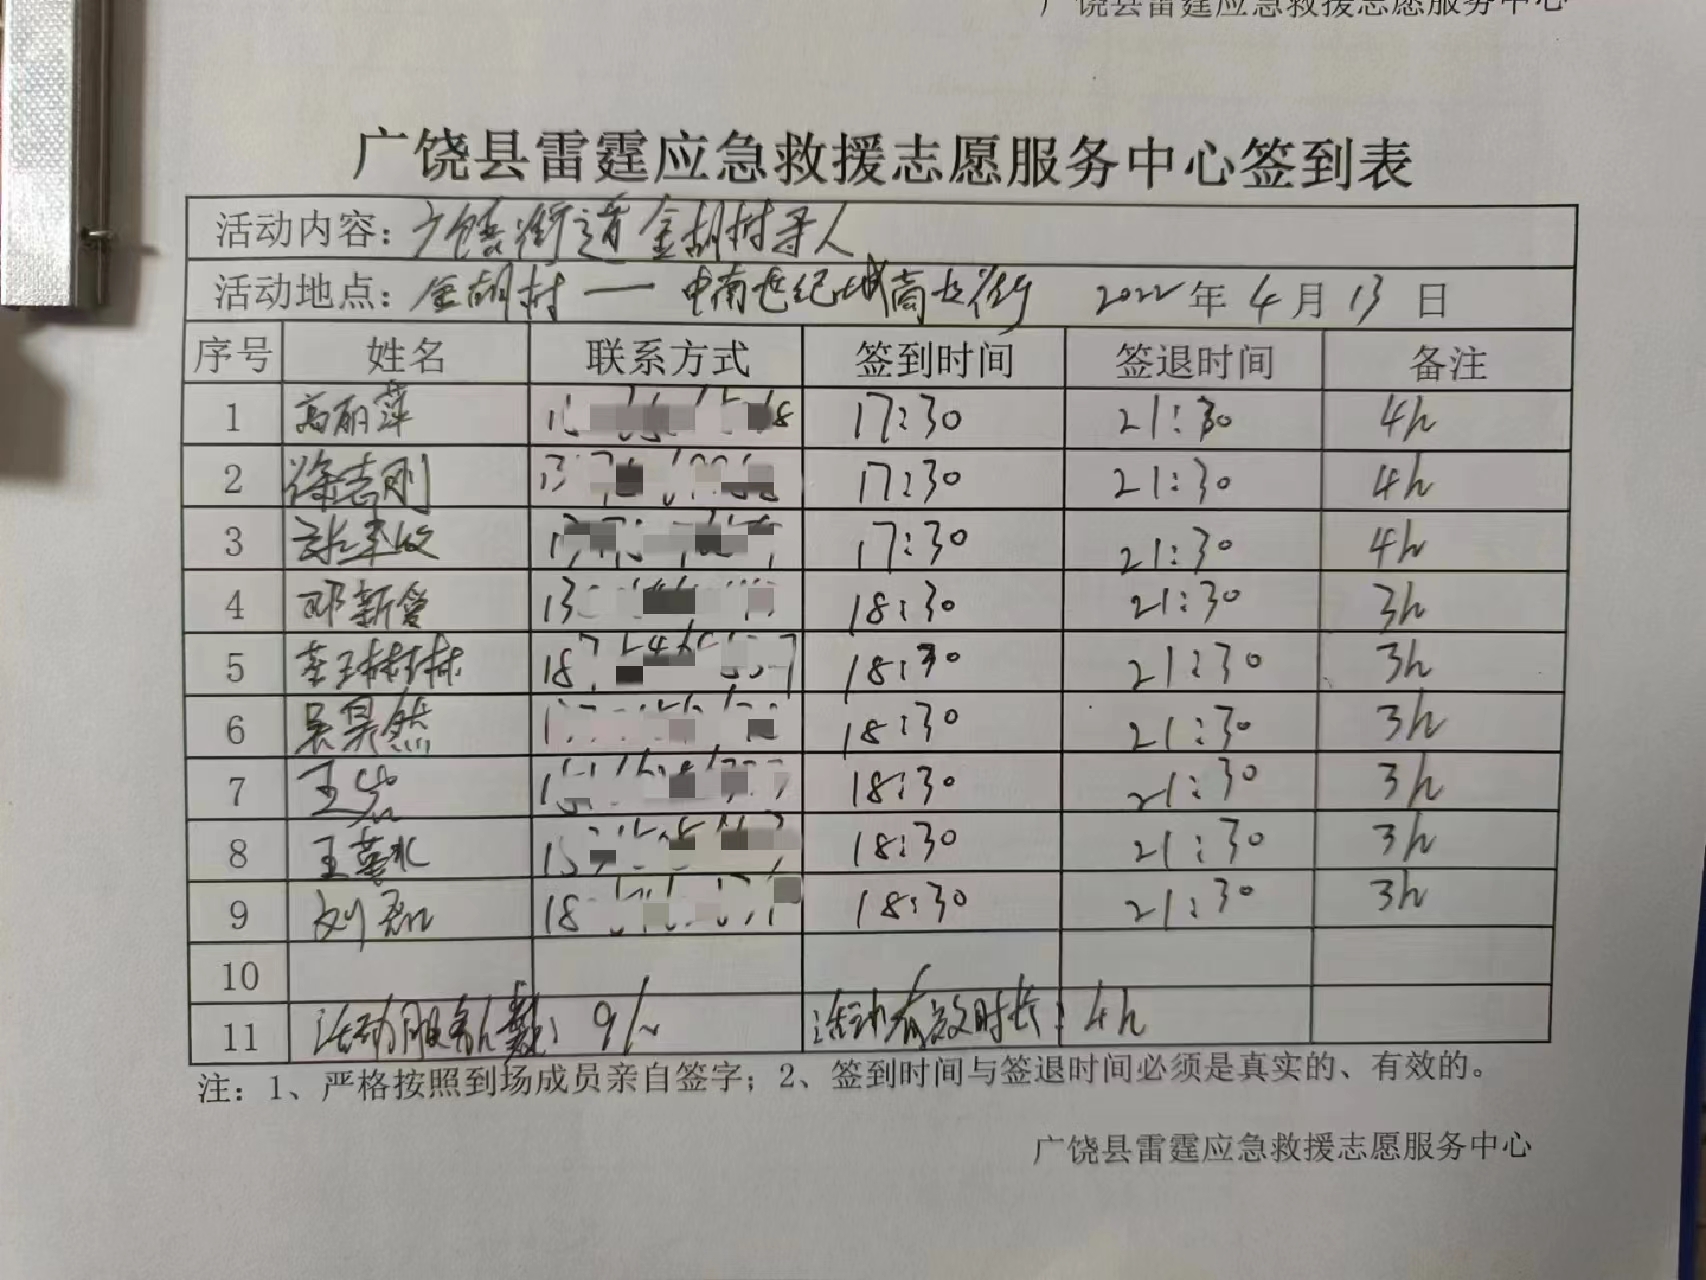 广饶县雷霆应急救援志愿服务中心
广饶县雷霆应急救援志愿服务中心签到表
活动内容：广饶街道金胡村寻人
活动地点：金胡村——中南世纪城商业街 2022年4月13日
序号 姓名 联系方式 签到时间 签退时间 备注
1 高丽萍 17:30 21:30 4h
2 徐志刚 17:30 21:30 4h
3 17:30 21:30 4h
4 邓新 18:30 21:30 3h
5 18:30 21:30 3h
6 吴昊然 18:30 21:30 3h
7 王 18:30 21:30 3h
8 王 18:30 21:30 3h
9 刘 18:30 21:30 3h
10
11 活动服务人数：9人 活动有效时长：4h
注：1、严格按照到场成员亲自签字；2、签到时间与签退时间必须是真实的、有效的。
广饶县雷霆应急救援志愿服务中心